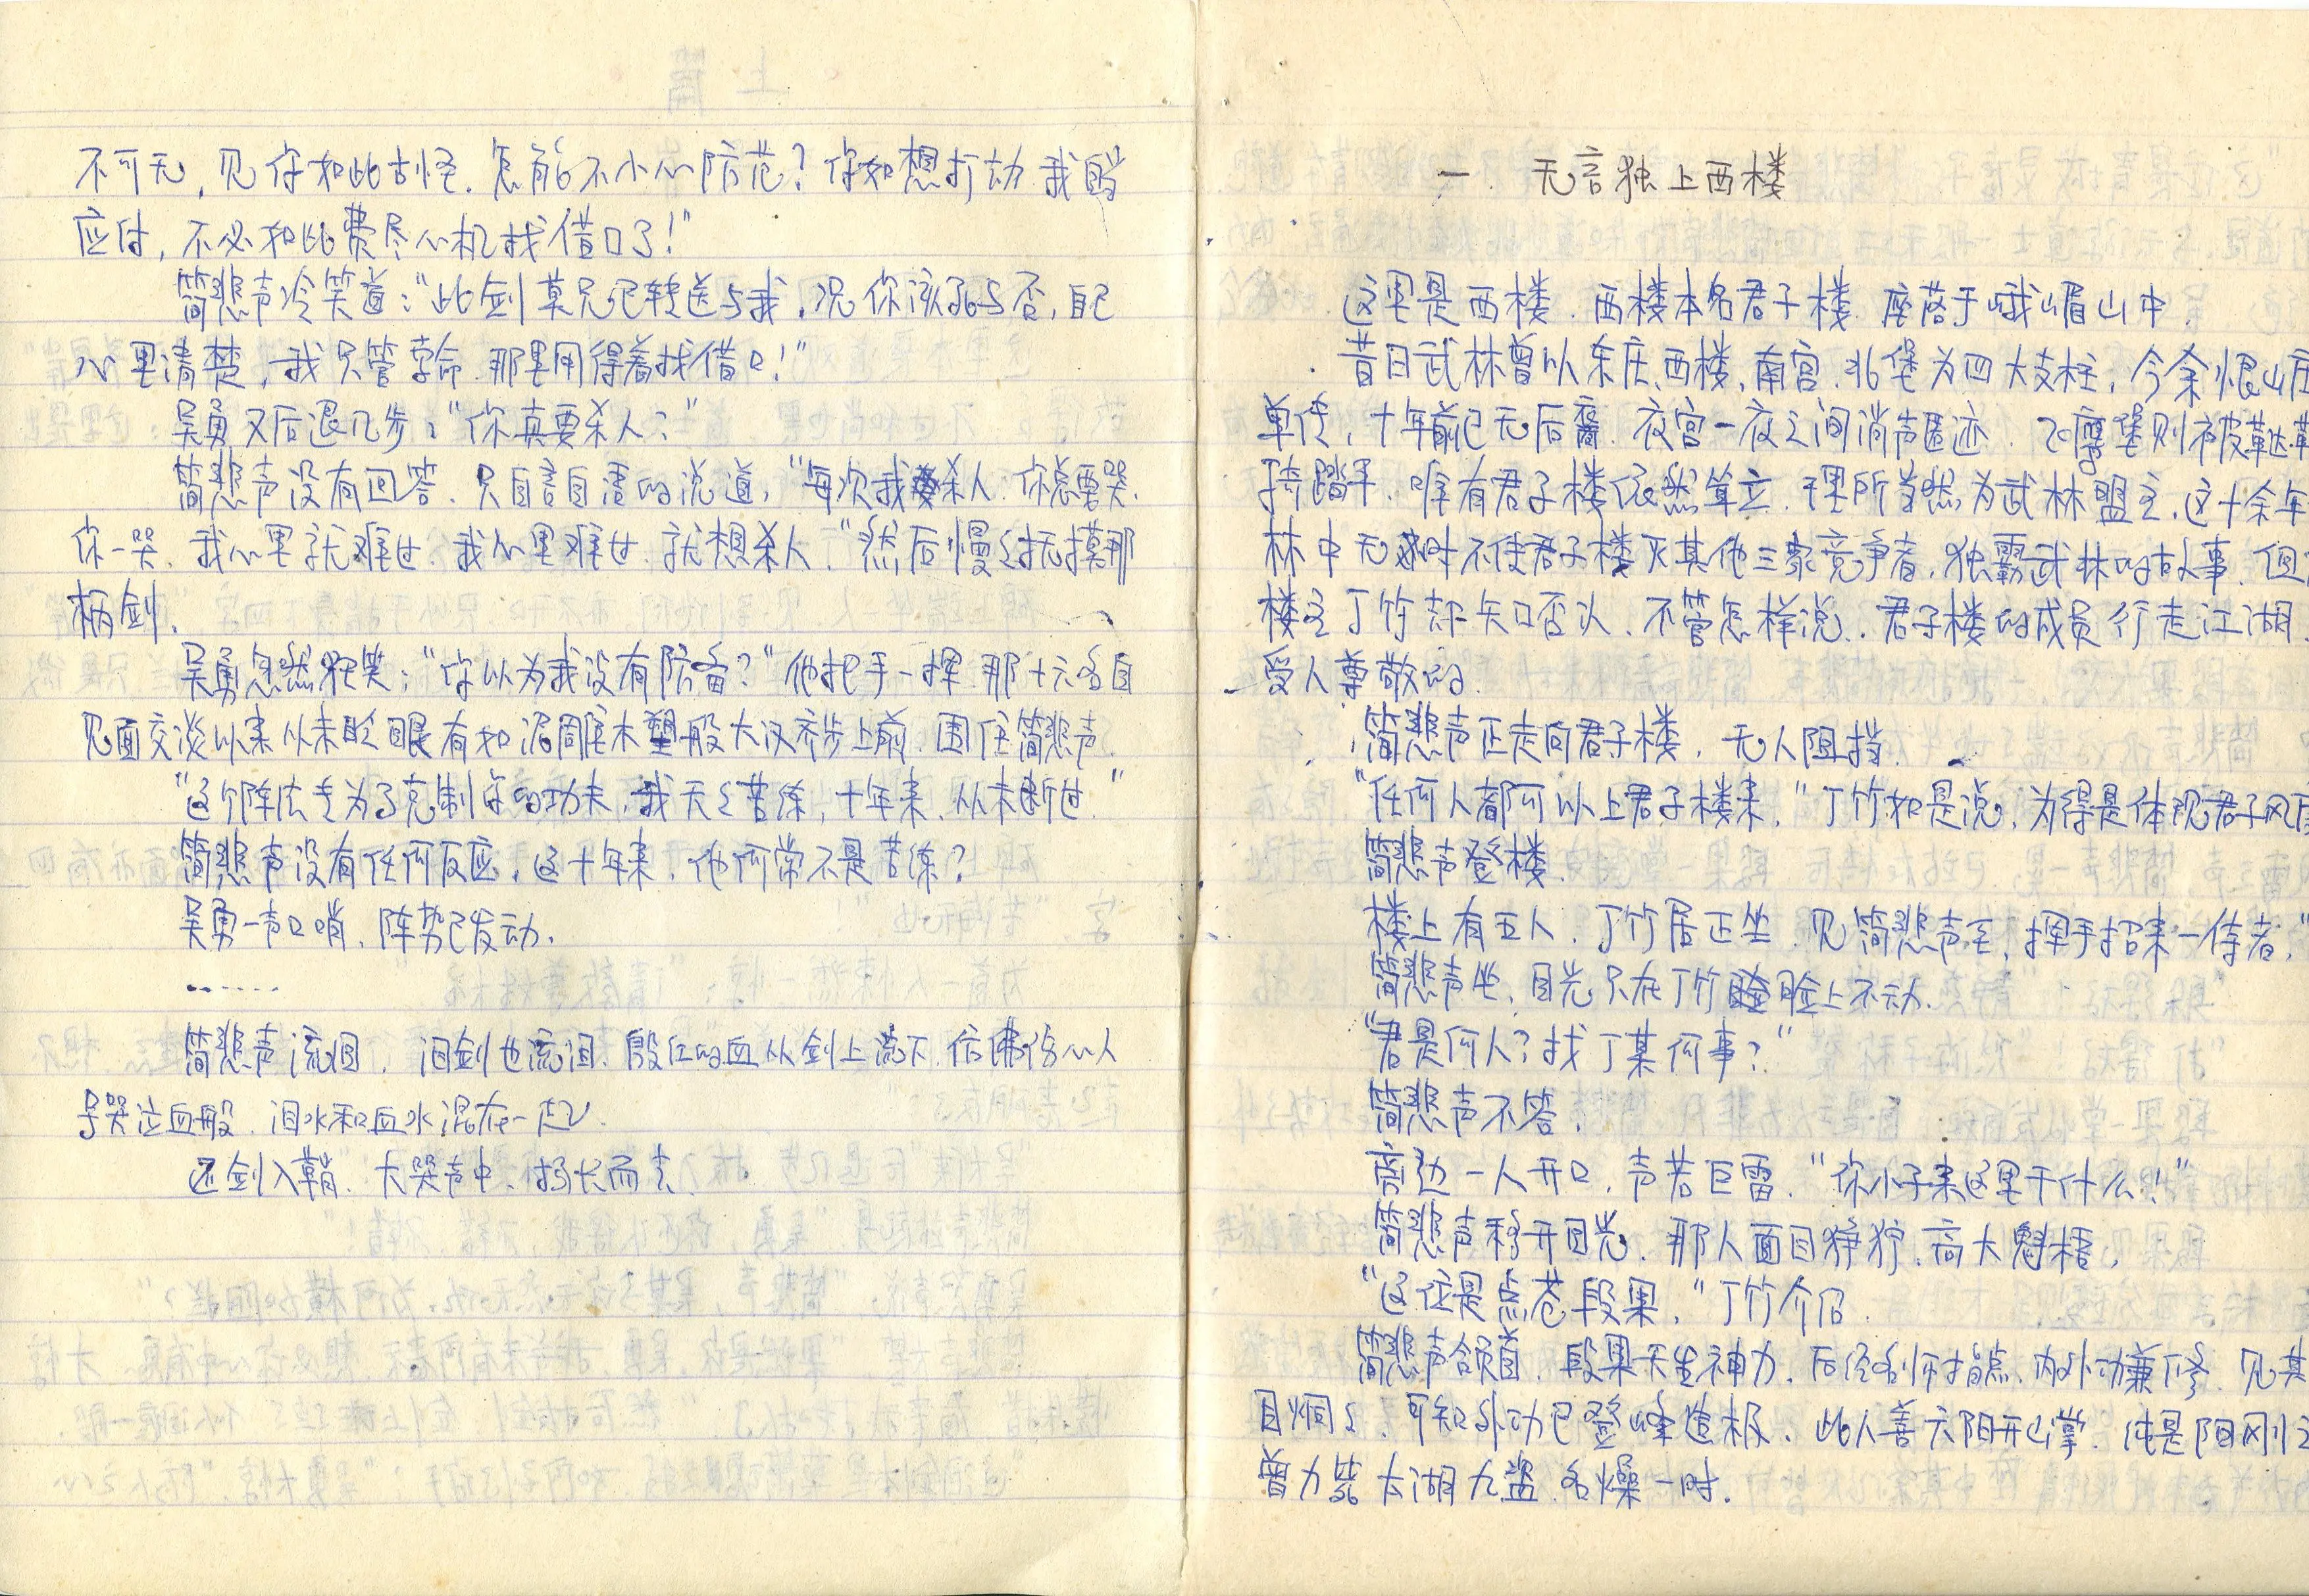 不可无，见你如此古怪．怎能不小心防范？你如想打动 我自当
应付，不必如此费尽心机找借口了！"
简悲声冷笑道："此剑莫兄已转送与我，况你该死与否，自己
心里清楚，我只管拿命．那里用得着找借口！"
吴勇又后退几步："你真要杀人？"
简悲声没有回答．只自言自语的说道，"每次我杀人．你总要哭．
你一哭．我心里就难过．我心里难过．就想杀人．"然后慢々抚摸那
柄剑．
吴勇忽然狂笑："你以为我没有防备？"他把手一挥．那十六名自
见面交谈以来从未眨眼有如泥雕木塑般大汉齐步上前．围住简悲声．
"这个阵法专为了克制你的功夫，我天々苦练，十年来．从未断过．"
简悲声没有任何反应．这十年来．他何尝不是苦练？
吴勇一声口哨．阵势已发动．
......
简悲声流泪． 泪剑也流泪．殷红的血从剑上流下．仿佛伤心人
号哭泣血般．泪水和血水混在一起．
还剑入鞘．大哭声中．扬长而去．
上篇
一． 无言独上西楼
这里是西楼．西楼本名君子楼．座落于峨嵋山中．
昔日武林曾以东庄、西楼，南宫．北堡为四大支柱，今余恨山庄
单传，十年前已无后裔．夜宫一夜之间消声匿迹．飞鹰堡则被鞑靼
骑踏平．唯有君子楼依然耸立．理所当然为武林盟主．这十余年
林中无时不传君子楼灭其他三家竞争者．独霸武林的故事．但
楼主丁竹却矢口否认．不管怎样说．君子楼的成员行走江湖．
受人尊敬的．
简悲声正走向君子楼．无人阻挡．
"任何人都可以上君子楼来．"丁竹如是说，为得是体现君子风度
简悲声登楼．
楼上有五人．丁竹居正坐．见简悲声至，挥手招来一侍者．"
简悲声坐．目光只在丁竹脸上不动．
"君是何人？找丁某何事？"
简悲声不答．
旁边一人开口．声若巨雷．"你小子来这里干什么！"
简悲声移开目光．那人面目狰狞．高大魁梧．
"这位是点苍段果．"丁竹介绍．
简悲声颌首．段果天生神力．后经名师指点．内外功兼修．见其
目炯々．可知外功已登峰造极．此人善六阳开山掌．纯是阳刚之
曾力毙太湖九盗．名燥一时．